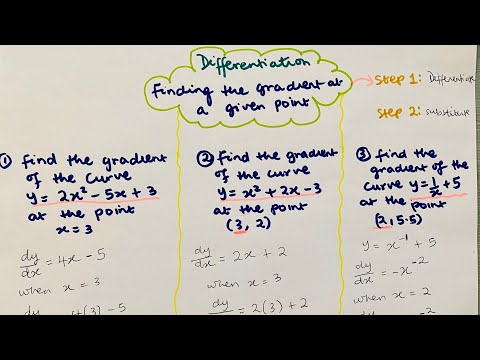 Differentiation
Finding the gradient at
a given point
Step 1: Differentiate
Step 2: Substitute
① Find the gradient
of the curve
y = 2x² - 5x + 3
at the point
x = 3
dy/dx = 4x - 5
when x = 3
4(3) - 5
② Find the gradient
of the curve
y = x² + 2x - 3
at the point
(3, 2)
dy/dx = 2x + 2
when x = 3
dy = 2(3) + 2
③ Find the
gradient of the
curve y = 1/x + 5
at the point
(2, 5.5)
y = x⁻¹ + 5
dy/dx = -x⁻²
when x = 2